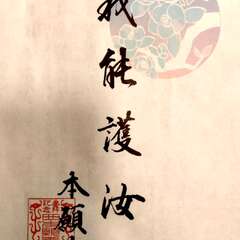 我能護汝
本願